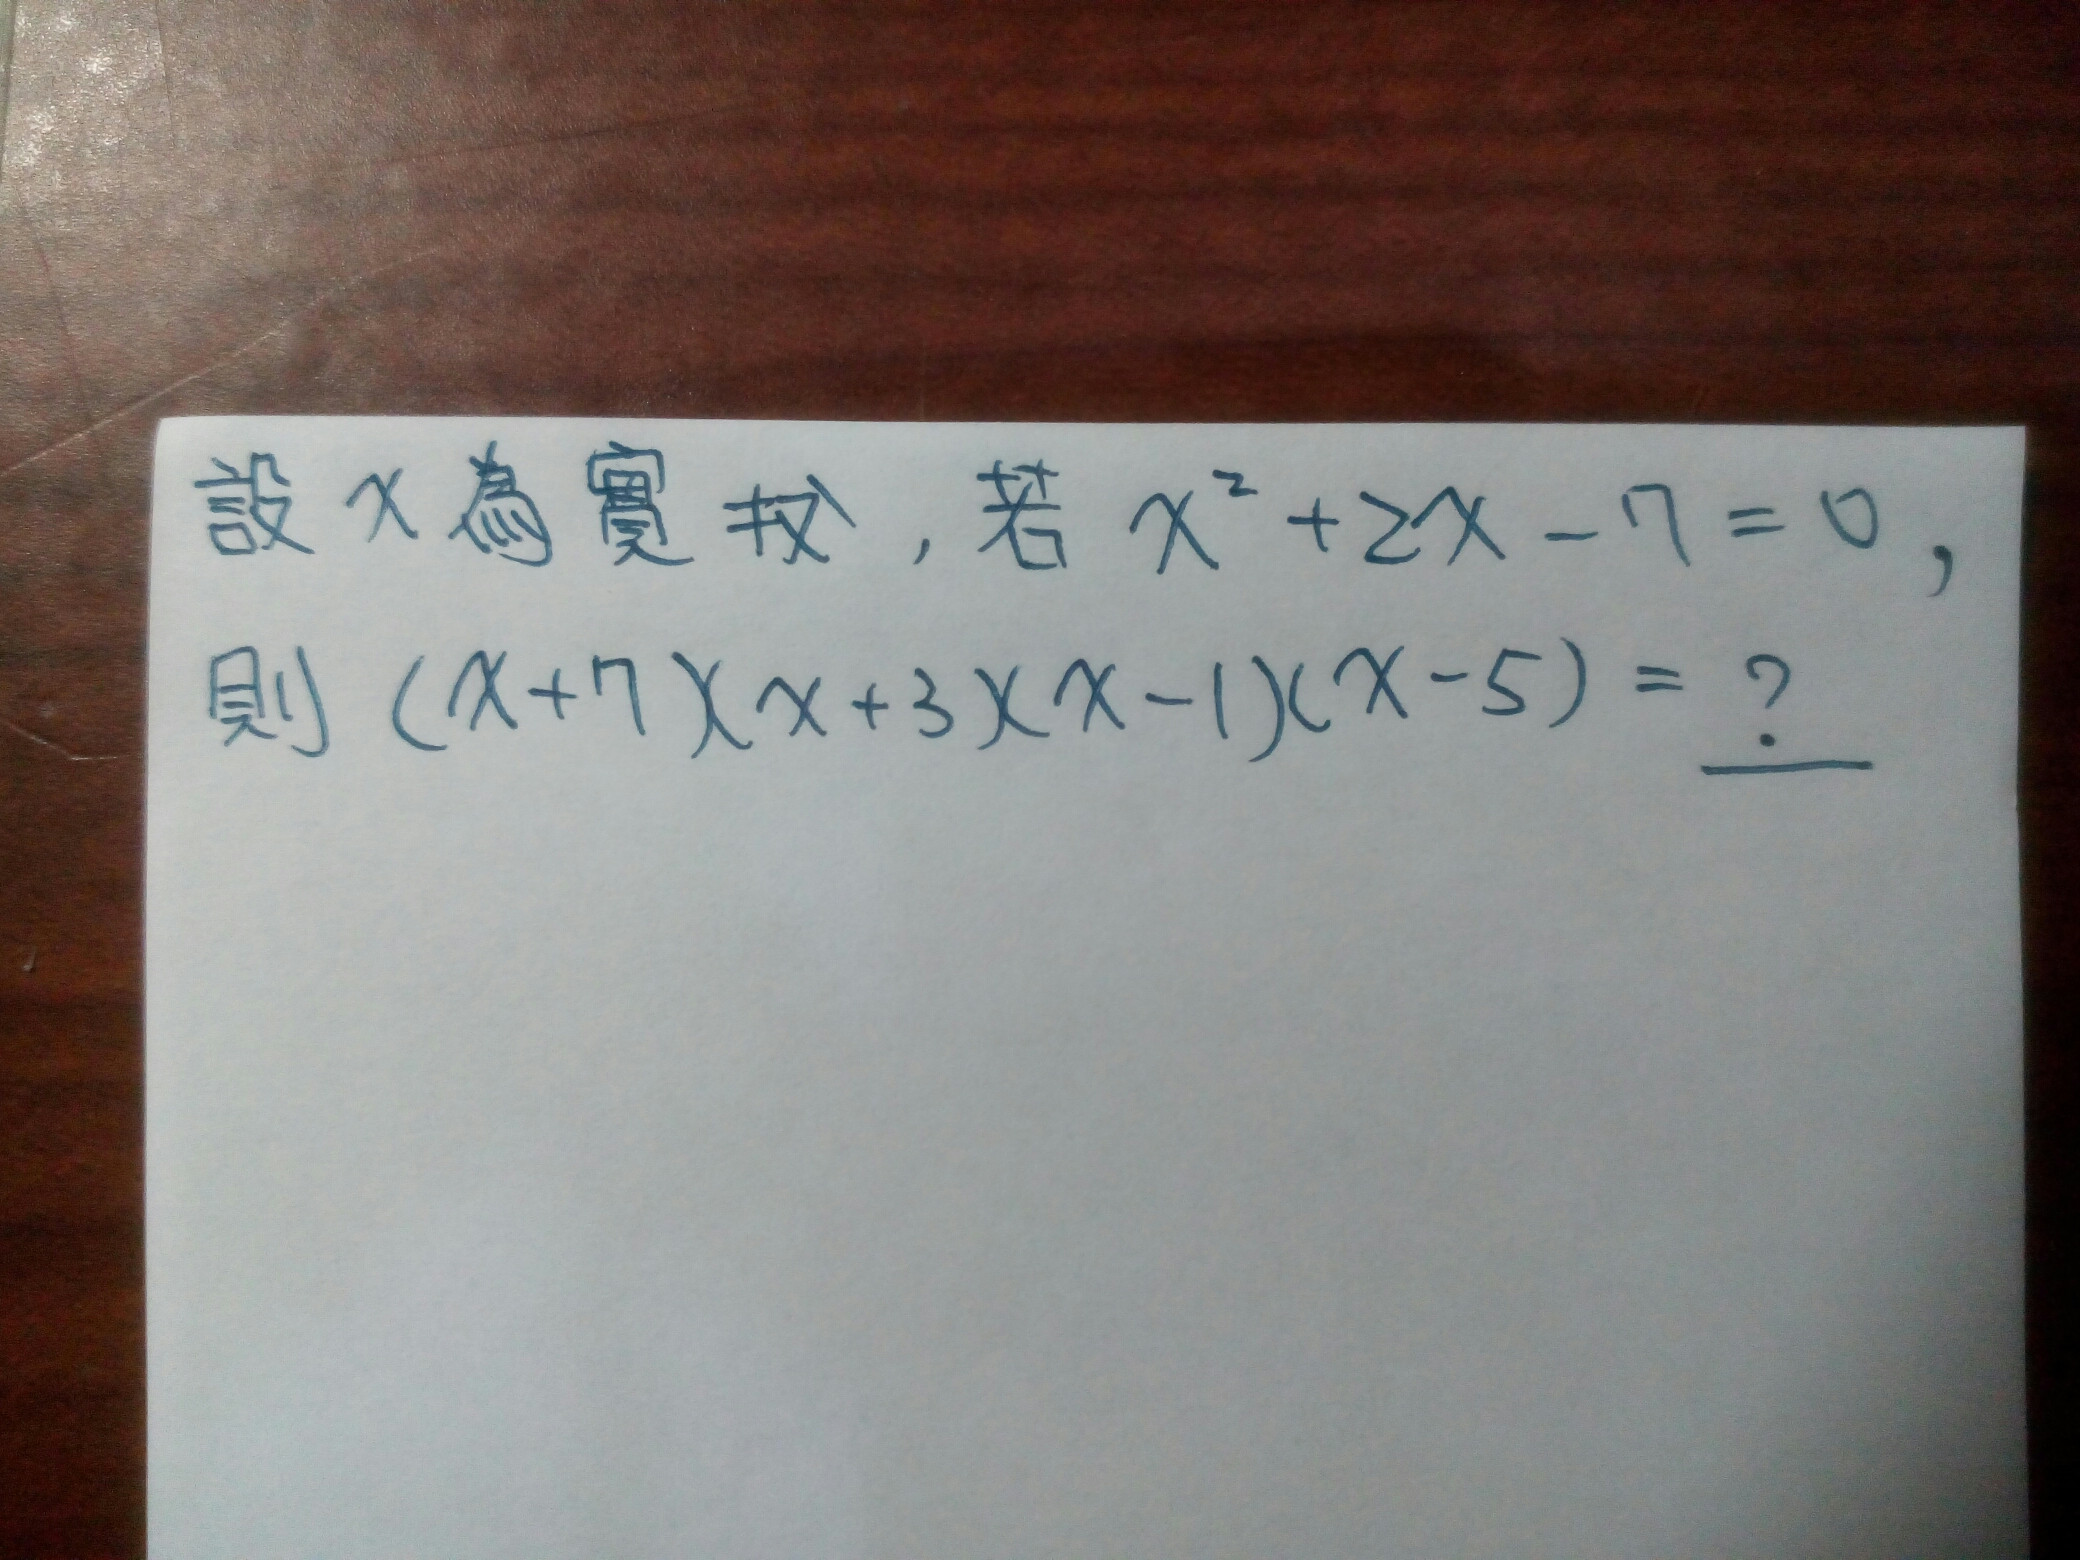 設x為實数,若 x²+2x-7=0,
則 (x+7)(x+3)(x-1)(x-5)= ?